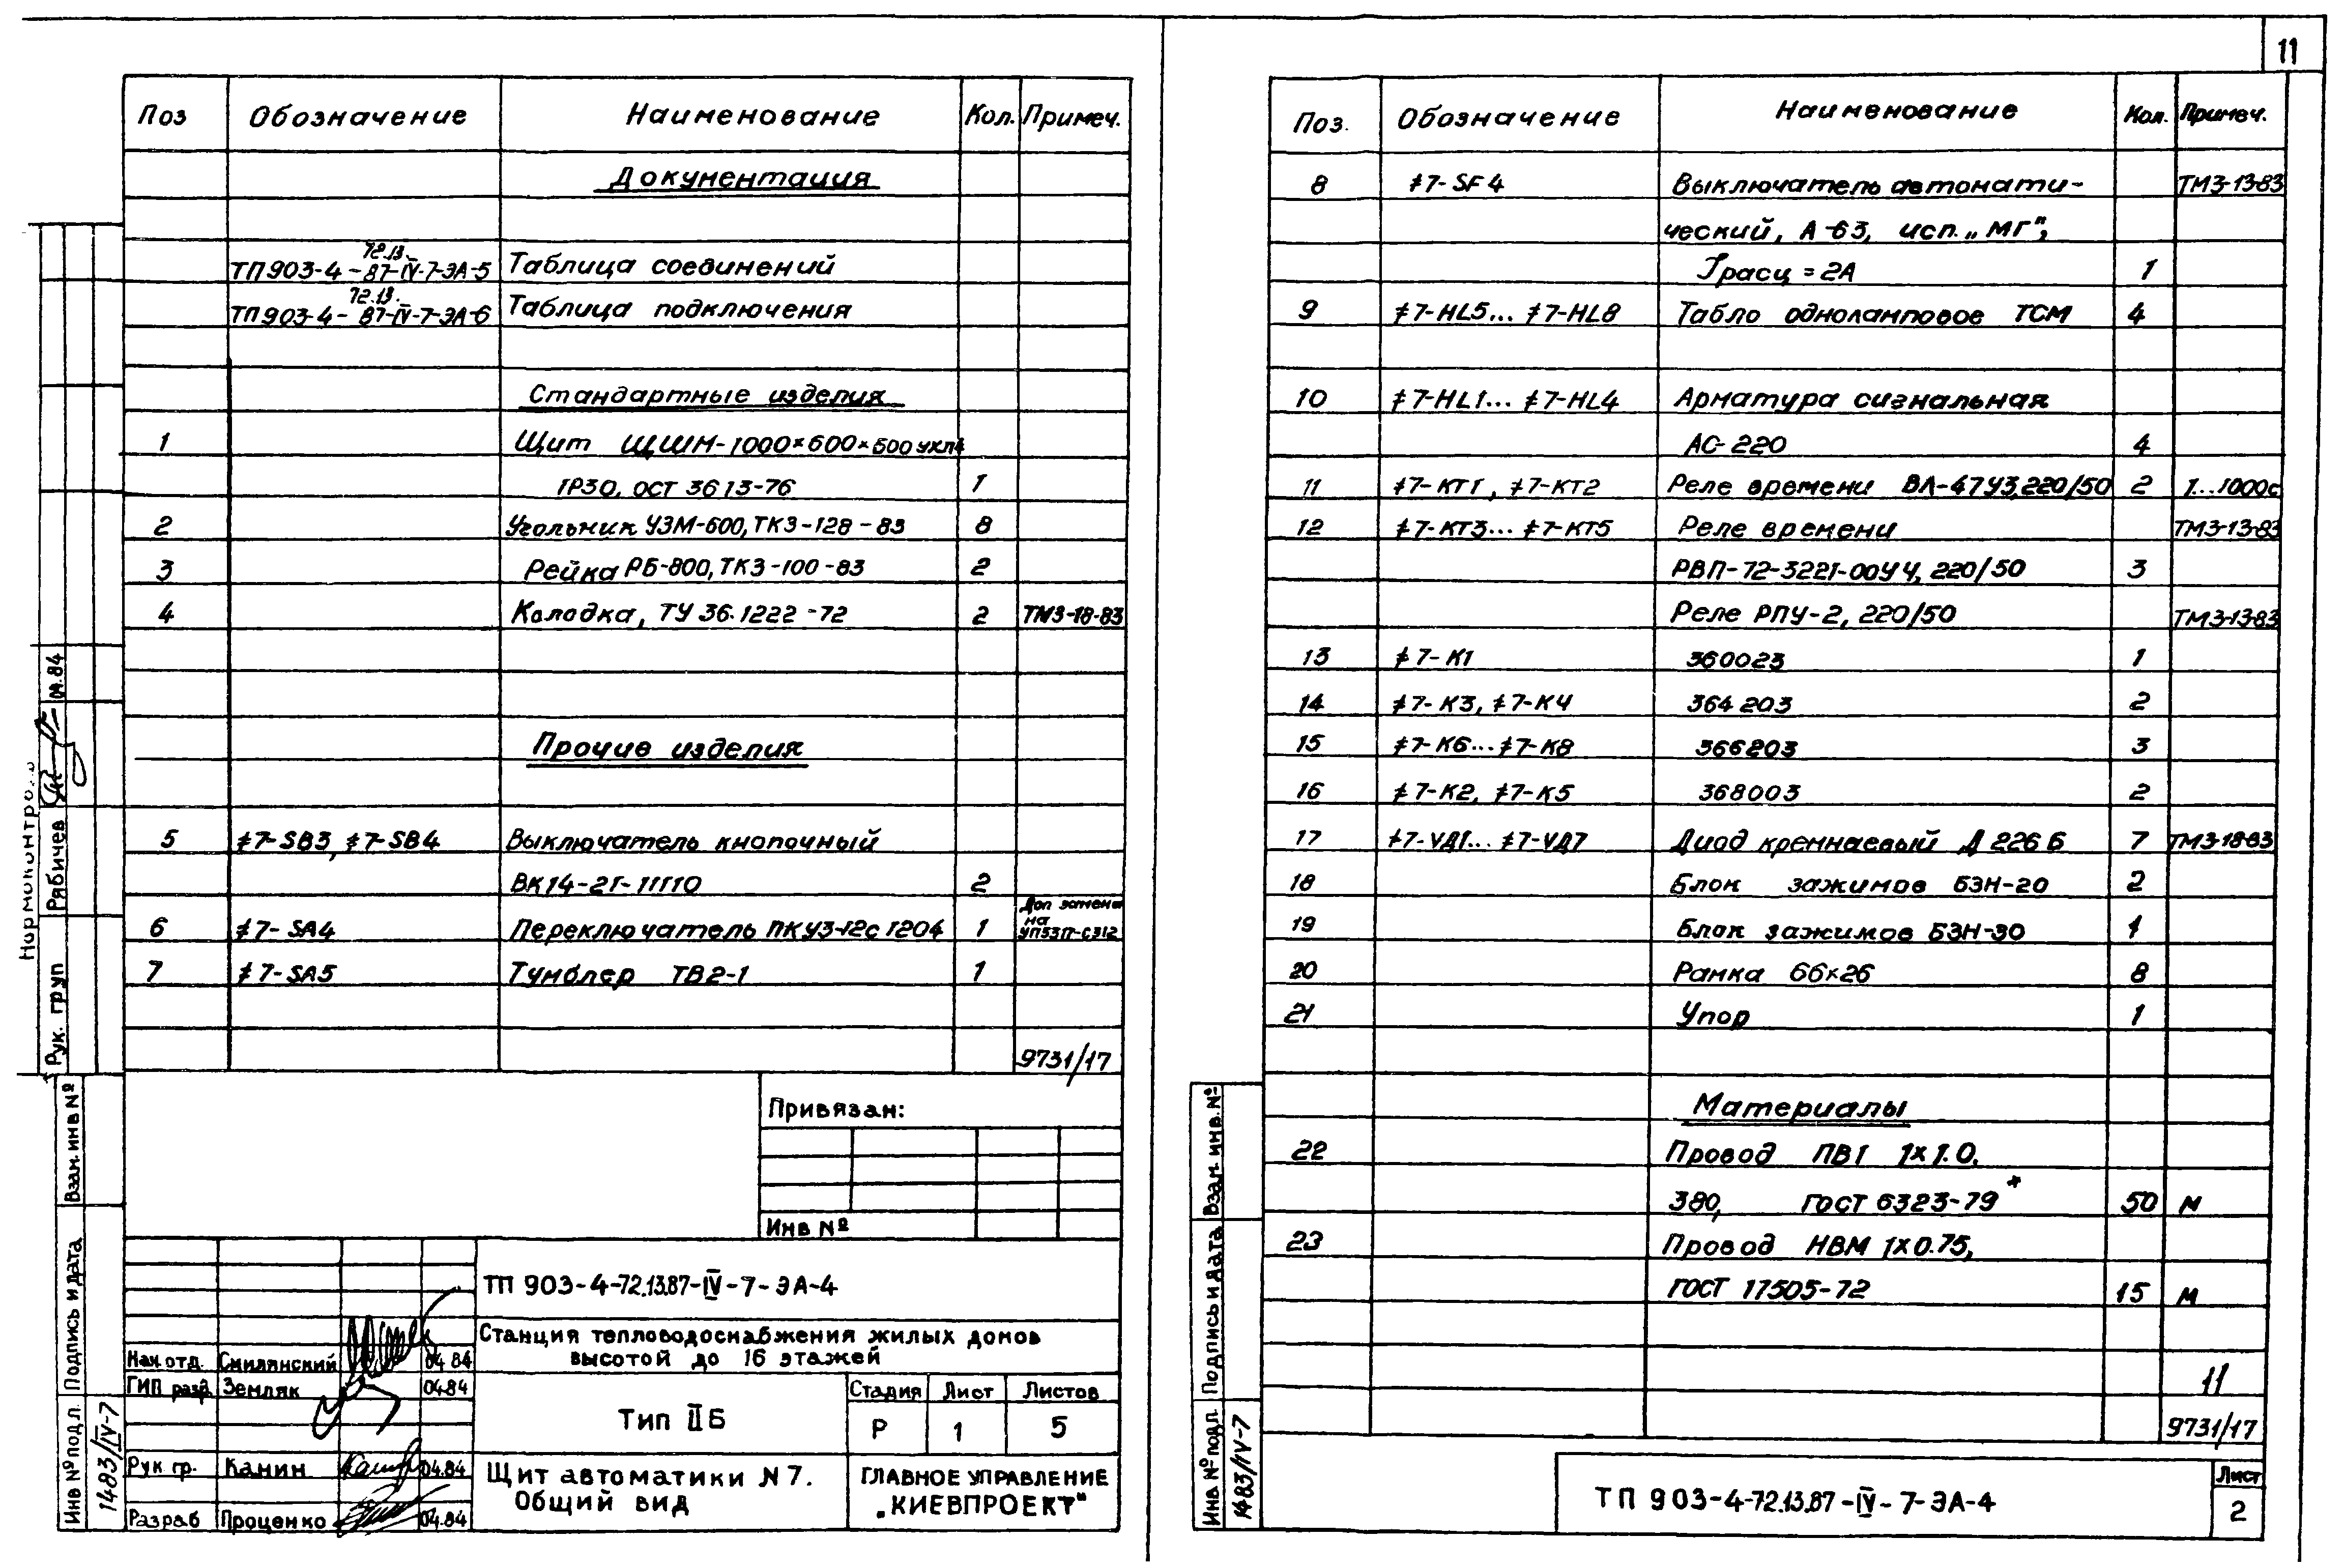 11
Поз Обозначение Наименование Кол. Примеч.
Документация
72.13.
ТП903-4-87-IV-7-ЭА-5 Таблица соединений
72.13.
ТП903-4-87-IV-7-ЭА-6 Таблица подключения
Стандартные изделия
1 Щит ЩШМ-1000×600×500 УХЛ4
IP30, ОСТ 3613-76 1
2 Угольник УЗМ-600, ТК3-128-83 8
3 Рейка РБ-800, ТК3-100-83 2
4 Колодка, ТУ 36.1222-72 2 ТМ3-18-83
Прочие изделия
5 ≠7-SB3, ≠7-SB4 Выключатель кнопочный
ВК14-21-11110 2
6 ≠7-SA4 Переключатель ПКУ3-12с 1204 1 Доп замена
на
УП5317-С312
7 ≠7-SA5 Тумблер ТВ2-1 1
9731/17
Привязан:
Инв №
ТП 903-4-72.13.87-IV-7-ЭА-4
Станция тепловодоснабжения жилых домов
высотой до 16 этажей
Нач.отд. Смилянский 04 84
ГИП разд. Земляк 04.84
Тип IIБ
Стадия Лист Листов
Р 1 5
Рук гр. Канин 04.84
Разраб Проценко 04.84
Щит автоматики N 7.
Общий вид
ГЛАВНОЕ УПРАВЛЕНИЕ
„КИЕВПРОЕКТ"
Нормоконтро
Рук. груп Рябичев 04.84
Взам. инв №
Подпись и дата
Инв № подл. 1483/IV-7
Поз. Обозначение Наименование Кол. Примеч.
8 ≠7-SF4 Выключатель автомати- ТМ3-13-83
ческий, А-63, исп. „МГ",
Iрасц = 2А 1
9 ≠7-HL5... ≠7-HL8 Табло одноламповое ТСМ 4
10 ≠7-HL1... ≠7-HL4 Арматура сигнальная
АС-220 4
11 ≠7-КТ1, ≠7-КТ2 Реле времени ВЛ-47У3, 220/50 2 1...1000с
12 ≠7-КТ3... ≠7-КТ5 Реле времени ТМ3-13-83
РВП-72-3221-00У4, 220/50 3
Реле РПУ-2, 220/50 ТМ3-13-83
13 ≠7-К1 360023 1
14 ≠7-К3, ≠7-К4 364203 2
15 ≠7-К6...≠7-К8 366203 3
16 ≠7-К2, ≠7-К5 368003 2
17 ≠7-VД1... ≠7-VД7 Диод кремнаевый Д 226 Б 7 ТМ3-18-83
18 Блок зажимов БЗН-20 2
19 Блок зажимов БЗН-30 1
20 Рамка 66×26 8
21 Упор 1
Материалы
22 Провод ПВ1 1×1.0,
380, ГОСТ 6323-79* 50 м
23 Провод НВМ 1×0.75,
ГОСТ 17505-72 15 м
11
9731/17
ТП 903-4-72.13.87-IV-7-ЭА-4
Лист
2
Взам. инв. №
Подпись и дата
Инв № подл. 1483/IV-7